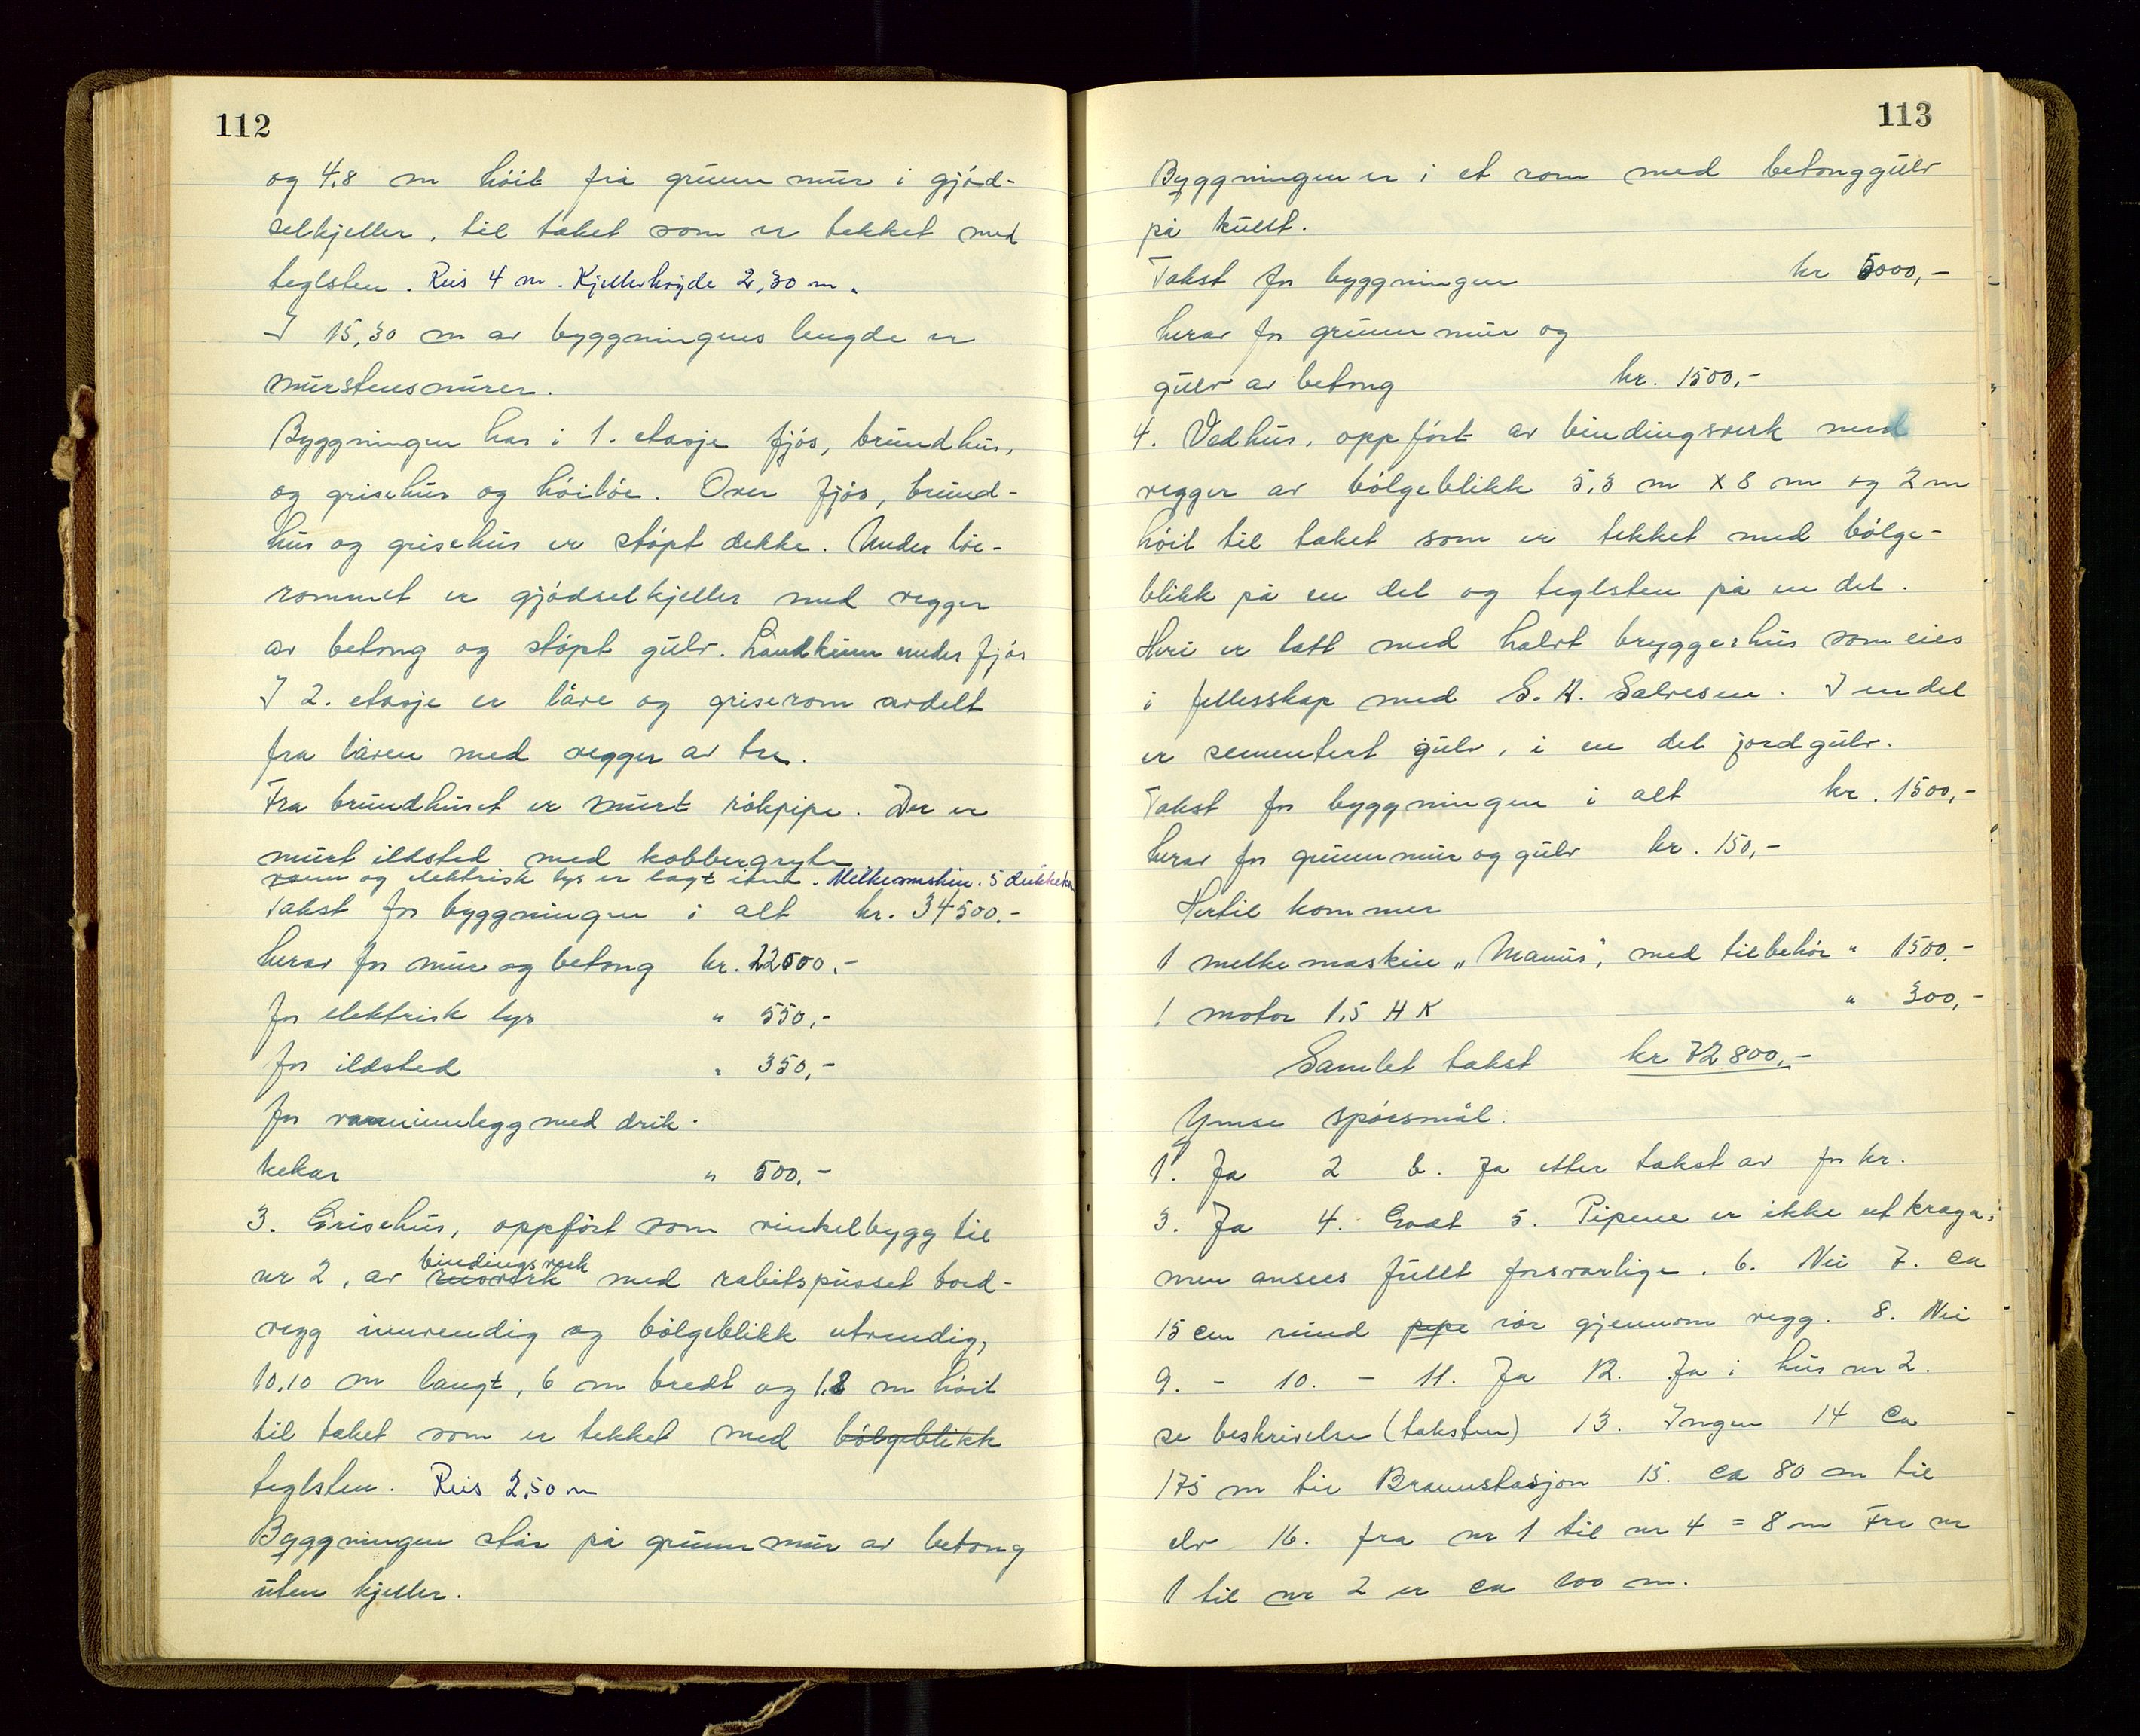 112
og 4,8 m höit fra grunnmur i gjöd-
selkjeller, til taket som er tekket med
teglsten. Reis 4 m. Kjellerhøyde 2,30 m.
I 15,30 m av byggningens lengde er
murstensmurer.
Byggningen har i 1. etasje fjös, brundhus,
og grisehus og höilöe. Over fjös, brund-
hus og grisehus er støpt dekke. Under löe-
rommet er gjödselkjeller med vegger
av betong og støpt gulv. Landkum under fjös
I 2. etasje er låve og griserom avdelt
fra låven med vegger av tre.
Fra brundhuset er murt rökpipe. Der er
murt ildsted med kobbergryte
vann og elektrisk lys er lagt inn. Melkemaskin. 5 drikkekar
Takst for byggningen i alt kr. 34500.-
herav for mur og betong kr. 22500.-
for elektrisk lys " 550,-
for ildsted " 350,-
for vanninnlegg med drik-
kekar " 500,-
3. Grisehus, oppfört som vinkelbygg til
bindingsverk
nr 2, av reisverk med rabitspusset bord-
vegg innvendig og bölgeblikk utvendig,
10,10 m langt, 6 m bredt og 1,8 m höit
til taket som er tekket med bölgeblikk
teglsten. Reis 2,50 m
Byggningen står på grunnmur av betong
uten kjeller.
113
Byggningen er i et rom med betonggulv
på kullt.
Takst for byggningen kr 5000,-
herav for grunnmur og
gulv av betong kr. 1500,-
4. Vedhus, oppfört av bindingsverk med
vegger av bölgeblikk 5,3 m x 8 m og 2 m
höit til taket som er tekket med bölge-
blikk på en del og teglsten på en del.
Heri er tatt med halvt bryggerhus som eies
i fellesskap med S. A. Salvesen. I en del
er sementert gulv, i en del jordgulv.
Takst for byggningen i alt kr. 1500,-
herav for grunnmur og gulv kr. 150,-
Hertil kommer
1 melkemaskin „Manus", med tilbehör " 1500.-
1 motor 1,5 HK " 300,-
Samlet takst kr 72800,-
Ymse spörsmål:
1. Ja 2 b. Ja etter takst av for kr.
3. Ja 4. Godt 5. Pipene er ikke utkraga,
men ansees fullt forsvarlige. 6. Nei 7. ca
15 cm rund pipe rör gjennom vegg. 8. Nei
9. - 10. - 11. Ja 12. Ja i hus nr 2.
se beskrivelse (taksten) 13. Ingen 14 Ca
175 m til Brannstasjon 15. ca 80 m til
elv 16. fra nr 1 til nr 4 = 8 m Fra nr
1 til nr 2 er ca 100 m.